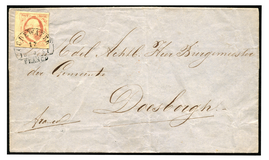 FRANCO
Edel Achtb. Heer Burgemeester
der Gemeente
Doesborgh
franco